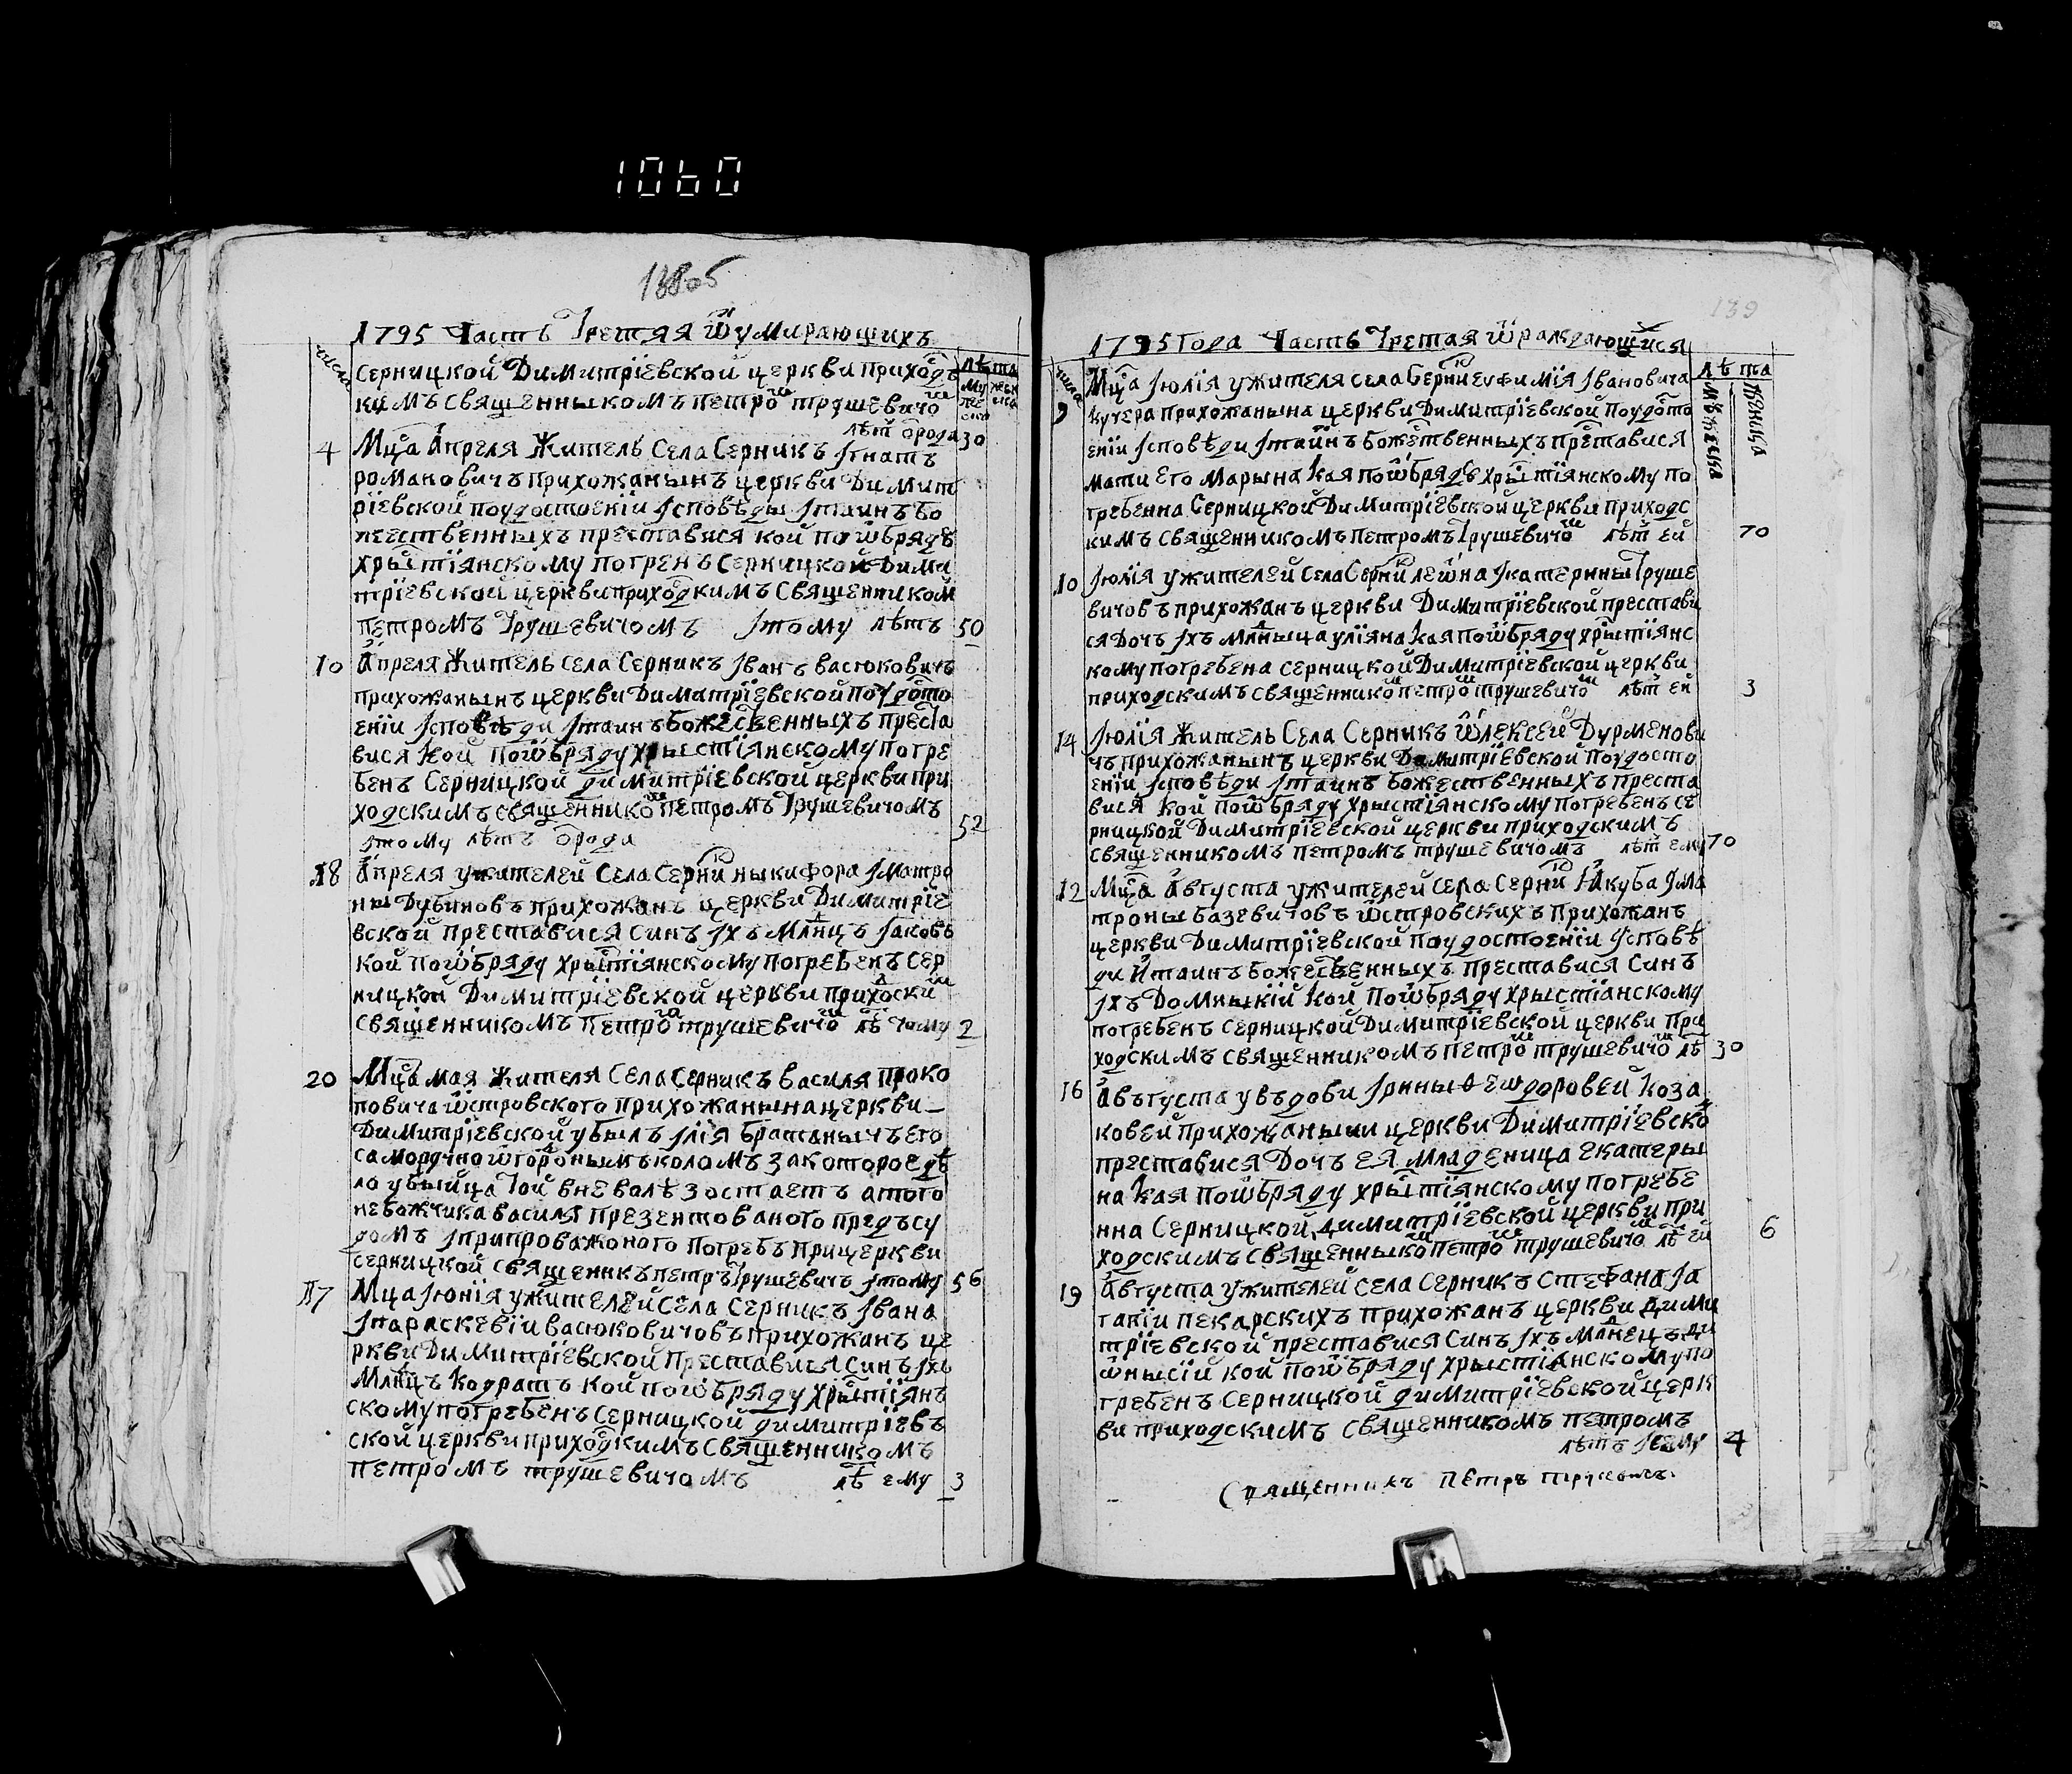 1060
138об
1795 Часть Третяя ѿ умирающихъ
число
лѣта
му же ска
жен ска
серницкой Димитрїевской церкви приходс
кимъ священныкомъ петромъ трушевичомъ
лѣт ѿрода 30
4 Мца Апреля Житель Села Серникъ Iгнатъ
романовичъ прихожанынъ церкви Димит
рїевской поудостоенїи Iсповѣды Iтаинъ бо
жественныхъ преставися кой поѡбрядѣ
хрыстїянскому погренъ Серницкой Дими
трїевской церкви приходскимъ Священником
петромъ Трушевичомъ Iтому лѣтъ 50
10 Апреля Житель села Серникъ Iванъ васюковичъ
прихожанынъ церкви Димитрїевской поудосто
енїи Iсповѣди Iтаинъ Божественныхъ преста
вися кой поѡбряду хрыстїянскому погре
бенъ Серницкой димитрїевской церкви при
ходскимъ священникомъ петромъ Трушевичомъ
Iтому лѣтъ ѿрода 52
18 Апреля ужителей Села Серник ныкифора Iматро
ны Дубиновъ прихожанъ церкви Димитрїе
вской преставися синъ Iхъ Млнцъ Iаковъ
кой поѡбряду хрыстїянскому погребенъ Сер
ницкой Димитрїевской церкви приходски
священникомъ Петромъ трушевичомъ лѣ тому 2
20 Мца мая Жителя Села Серникъ василя проко
повича ѡстровского прихожанына церкви
Димитрїевской убылъ Iлїя братанычъ его
саморучно ѡгородньмъ коломъ за которое дѣ
ло убыйца той вневолѣ зостаетъ атого
небожчика василя презентованого предъсу
домъ Iприпроважоного погребъ прицеркви
серницкой священикъ петръ Трушевичъ Iтому 56
17 Мца Iюнїя ужителей Села Серникъ Iвана
Iпараскевїи васюковичовъ прихожанъ це
ркви Димитрїевской Преставися Синъ Iхъ
Млнцъ кодратъ кой поѡбряду хрыстїянъ
скому погребенъ Серницкой димитрїевъ
ской церкви приходскимъ Священникомъ
петромъ трушевичомъ лѣ ему 3
139
1795 Года Часть Третая ѿ раждающися
числа
лѣта
мужеска
женска
9 Мца Iюлїя ужителя села Серник Еуфимїя Iвановича
кучера прихожанына церкви Димитрїевской поудосто
енїи Iсповѣди Iтаинъ божественныхъ преставися
мати Его Марына кая поѡбрядѣ хрыстїянскому по
гребенна Серницкой Димитрїевской церкви приходс
кимъ священникомъ петромъ Трушевичо лѣт ей 70
10 Iюлїя ужителей Села Серник леѡна Iкатерины Труше
вичовъ прихожанъ церкви Димитрїевской престави
ся Дочъ Iхъ млныца улїяна кая поѡбряду хрыстїянс
кому погребена серницкой Димитрїевской церкви
приходскимъ священнико петро трушевичо лѣт ей 3
14 Iюлїя Житель Села Серникъ ѡлексей Дурменови
чъ прихожанынъ церкви Димитрїевской поудосто
енїи Iсповѣди Iтаинъ божественныхъ преста
вися кой поѡбряду хрыстїянскому погребенъ се
рницкой Димитрїевской церкви приходскимъ
священникомъ петромъ трушевичомъ лѣт ему 70
12 Мца Августа ужителей села серник Якуба Iма
троны базевичовъ ѡстровскихъ прихожанъ
церкви Димитрїевской поудостоенїи Iсповѣ
ди Итаинъ божественныхъ преставися Синъ
Iхъ Домныкїй кой поѡбряду хрыстїанскому
погребенъ серницкой Димитрїевской церкви при
ходскимъ священникомъ петро трушевичо лѣ 30
16 Августа увъдови Iрины Ѳеѡдоровей Коза
ковей прихожаныни церкви Димитрїевско
преставися Дочъ ея младеница екатеры
на кая поѡбряду хрыстїянскому погребе
нна Серницкой димитрїевской церкви при
ходскимъ священныко петро трушевичо лѣ ей 6
19 Августа ужителей села серникъ стефана Iа
гапїи пекарскихъ прихожанъ церкви дими
трїевской преставися Синъ Iхъ млнецъ ди
ѡнысїй кой поѡбряду хрыстїанскому по
гребенъ серницкой димитрїевской церк
ви приходскимъ священникомъ петромъ
лѣтъ Iему 4
Священникъ Петръ трушевичъ